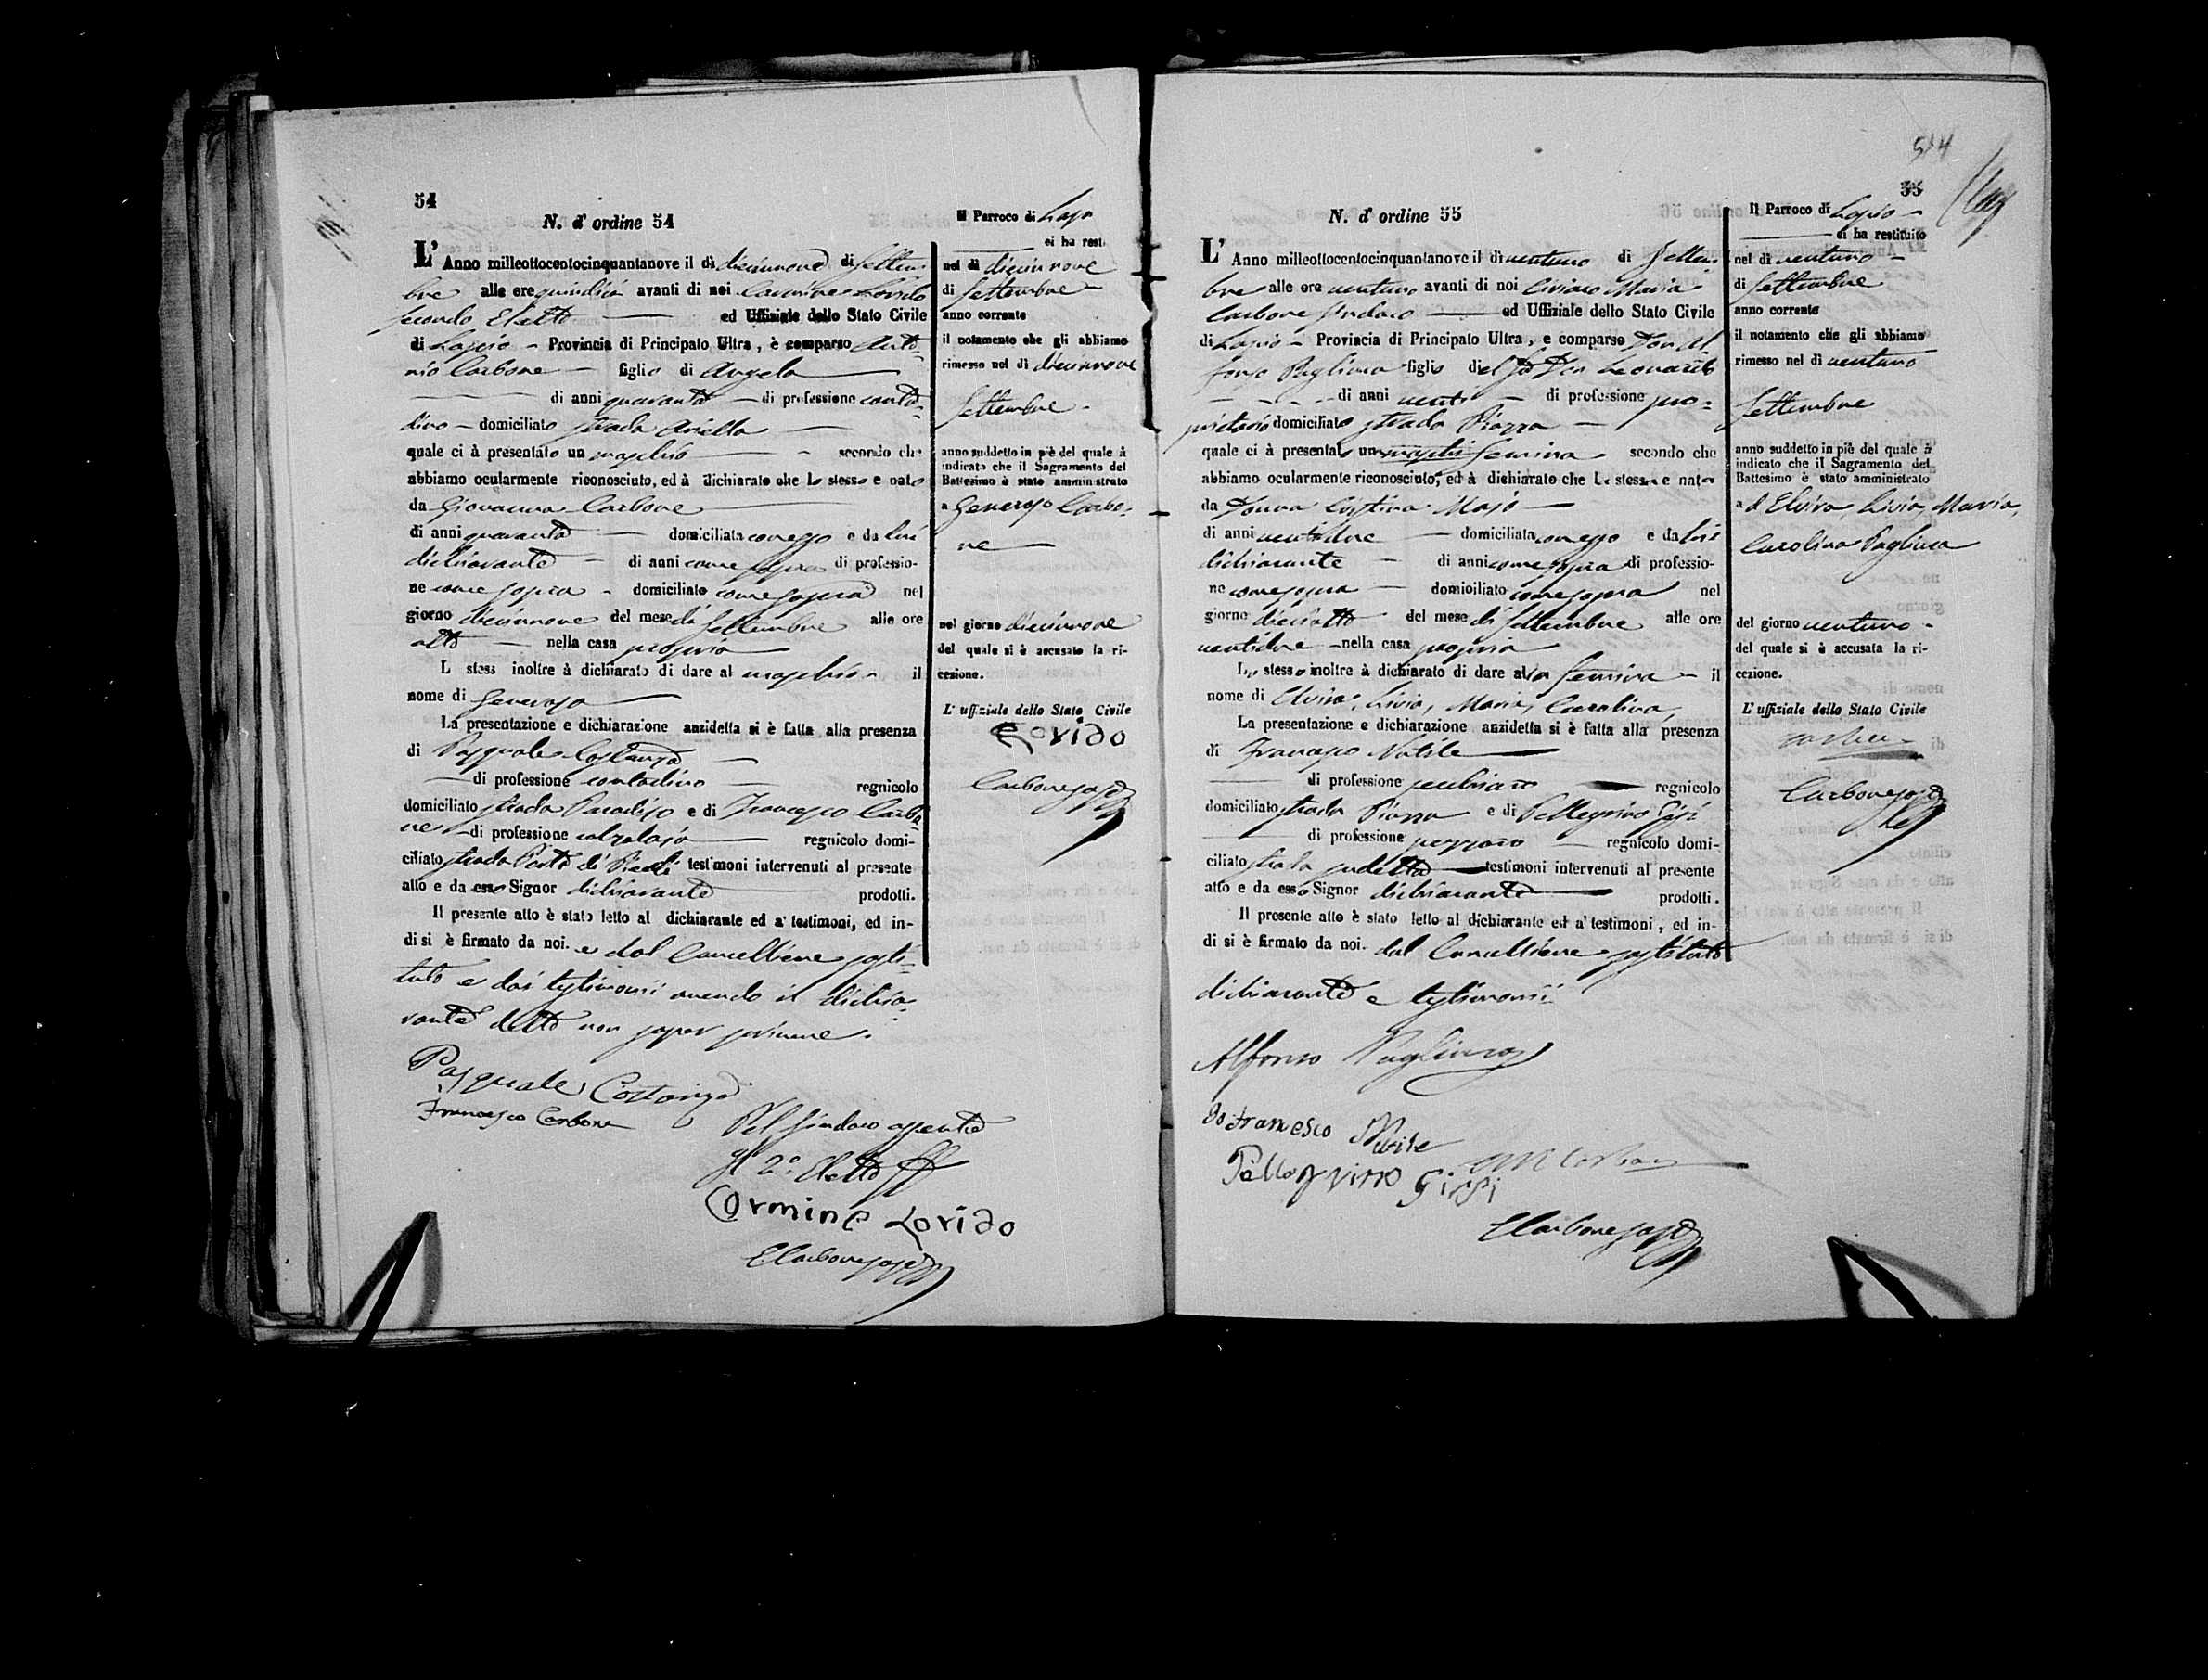 54
N. d' ordine 54
L' Anno milleottocentocinquantanove il dì diecinnove di Settem-
bre alle ore quindici avanti di noi Carmine Lorido
Secondo Eletto ed Uffiziale dello Stato Civile
di Lapio Provincia di Principato Ultra, è comparso Anto-
nio Carbone figlio di Angelo
di anni quaranta di professione conta-
dino domiciliato strada Ariella
quale ci à presentato un maschio secondo che
abbiamo ocularmente riconosciuto, ed à dichiarato che lo stesso e nato
da Giovanna Carbone
di anni quaranta domiciliata con esso e da lui
dichiarante di anni come sopra di professio-
ne come sopra domiciliato come sopra nel
giorno diecinnove del mese di Settembre alle ore
otto nella casa propria
L stess inoltre à dichiarato di dare al maschio il
nome di Generoso
La presentazione e dichiarazione anzidetta si è fatta alla presenza
di Pasquale Costanza
di professione contadino regnicolo
domiciliato strada Paradiso e di Francesco Carbo-
ne di professione calzolajo regnicolo domi-
ciliato strada Porta di testimoni intervenuti al presente
atto e da esso Signor dichiarante prodotti.
Il presente atto è stato letto al dichiarante ed a' testimoni, ed in-
di si è firmato da noi. e dal Cancelliere sosti-
tuto e dai testimonii avendo il dichia-
rante detto non saper scrivere.
Pasquale Costanza
Francesco Carbone
Pel Sindaco assente
Il 2.º Eletto ff
Carmine Lorido
CCarbone sost
Il Parroco di Lapio
ci ha resti
nel di diecinnove
di Settembre
anno corrente
il notamento che gli abbiamo
rimesso nel dì diecinnove
Settembre
anno suddetto in piè del quale à
indicato che il Sagramento del
Battesimo è stato amministrato
a Generoso Carbo-
ne
nel giorno diecinnove
del quale si è accusato la ri-
cezione.
L' uffiziale dello Stato Civile
Lorido
Carbone sost
514
55
N. d' ordine 55
L' Anno milleottocentocinquantanove il dì ventuno di Settem-
bre alle ore ventuno avanti di noi Ciriaco Maria
Carbone Sindaco ed Uffiziale dello Stato Civile
di Lapio Provincia di Principato Ultra, e comparso Don Al
fonso Pagliuca figlio del fu Don Leonardo
di anni venti di professione pro-
prietario domiciliato strada Piazza
quale ci à presentato una maschi femina secondo che
abbiamo ocularmente riconosciuto, ed à dichiarato che la stessa e nata
da Donna Cristina Majo
di anni ventidue domiciliata con esso e da lui
dichiarante di anni come sopra di professio-
ne come sopra domiciliato come sopra nel
giorno dieciotto del mese di Settembre alle ore
ventidue nella casa propria
Lo stesso inoltre à dichiarato di dare alla femina il
nome di Elvira, Livia, Maria, Carolina,
La presentazione e dichiarazione anzidetta si è fatta alla presenza
di Francesco Natile
di professione regnicolo
domiciliato strada Piazza e di Pellegrino
di professione regnicolo domi-
ciliato strada sudetta testimoni intervenuti al presente
atto e da esso Signor dichiarante prodotti.
Il presente atto è stato letto al dichiarante ed a' testimoni, ed in-
di si è firmato da noi. dal Cancelliere sostituto
dichiarante e testimonii
Alfonso Pagliuca
Io Francesco Natile
Pellegrino
CM Carbone
CCarbone sost
Il Parroco di Lapio
ci ha restituito
nel dì ventuno
di Settembre
anno corrente
il notamento che gli abbiamo
rimesso nel dì ventuno
Settembre
anno suddetto in piè del quale à
indicato che il Sagramento del
Battesimo è stato amministrato
a d'Elvira, Livia, Maria,
Carolina Pagliuca
del giorno ventuno
del quale si è accusata la ri-
cezione.
L' uffiziale dello Stato Civile
Carbone
Carbone sost